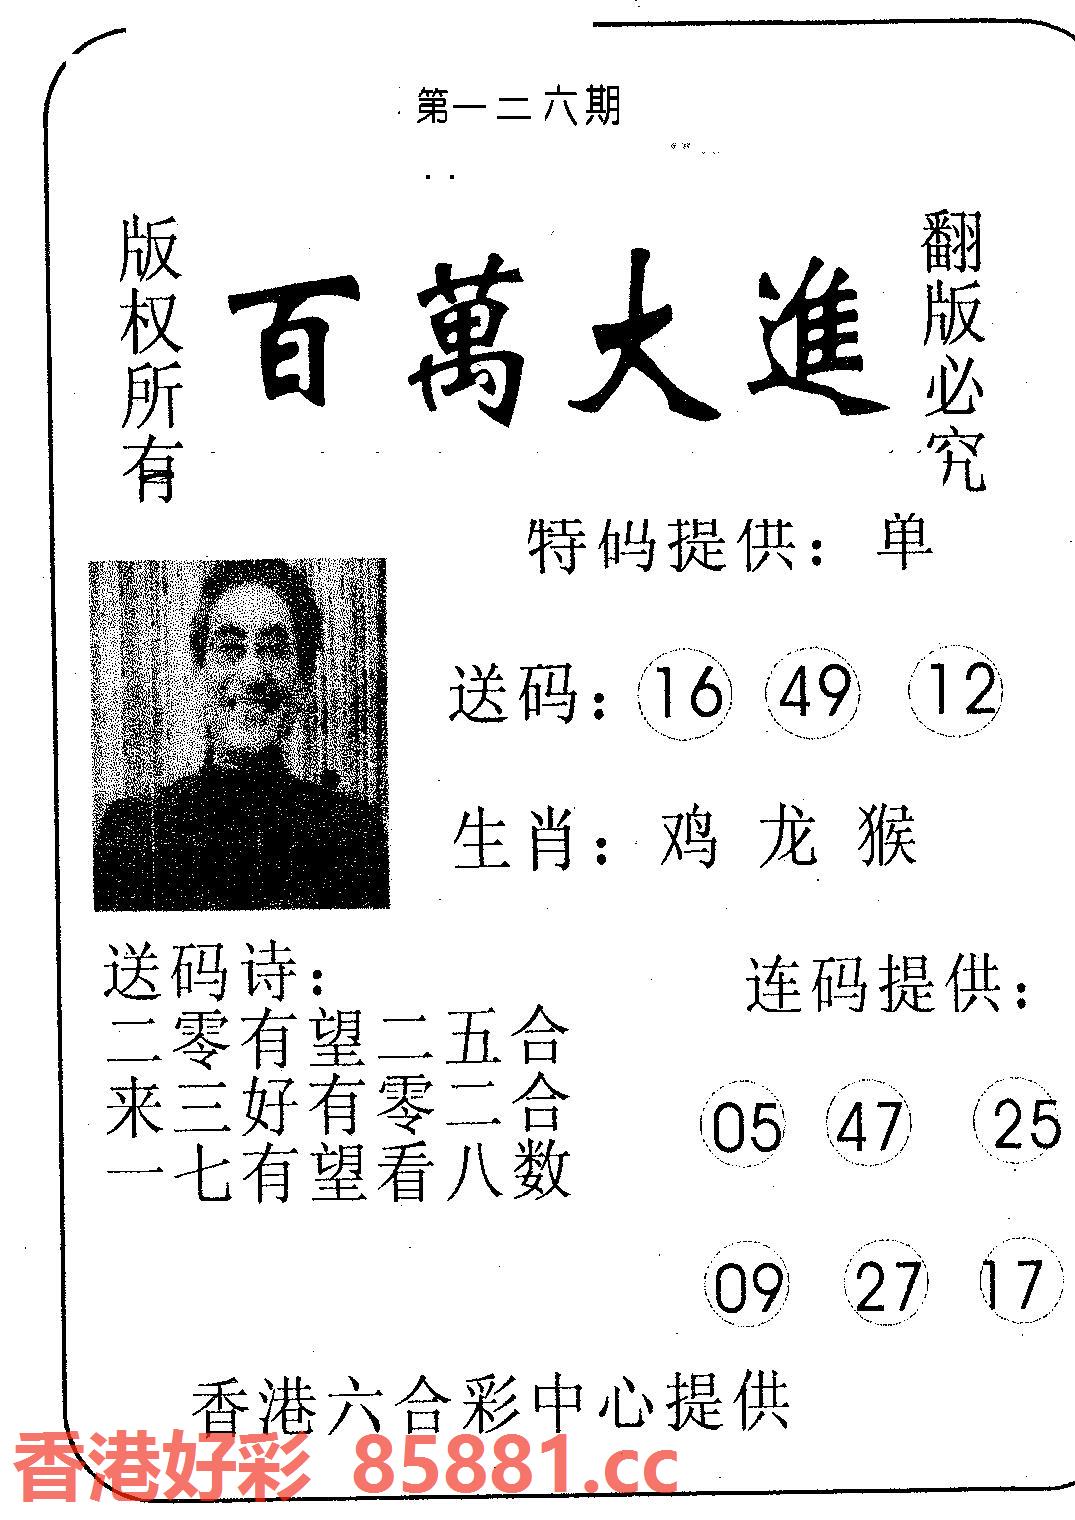 第一二六期
版权所有
百萬大進
翻版必究
特码提供：单
送码：16 49 12
生肖：鸡 龙 猴
送码诗：
二零有望二五合
来三好有零二合
一七有望看八数
连码提供：
05 47 25
09 27 17
香港六合彩中心提供
香港好彩 85881.cc